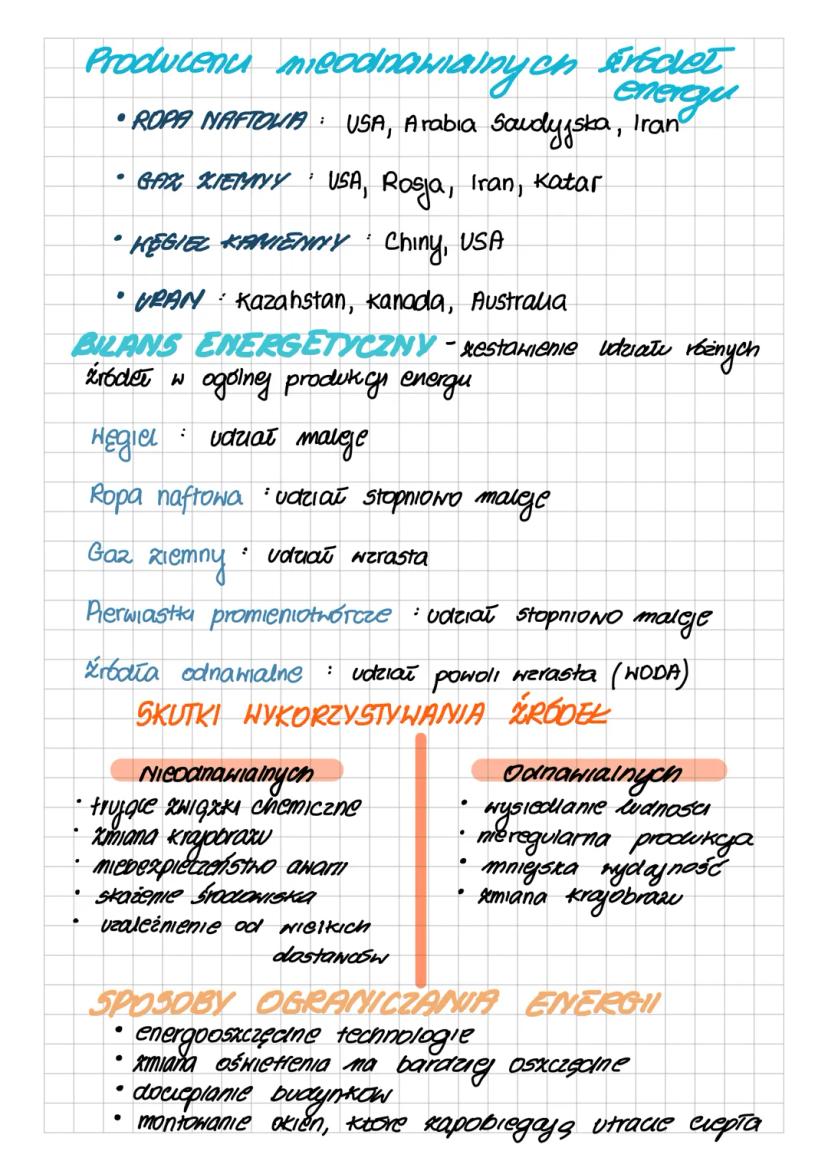 Producenci nieodnawialnych źródeł
energii
• ROPA NAFTOWA : USA, Arabia Saudyjska, Iran
• GAZ ZIEMNY : USA, Rosja, Iran, Katar
• WĘGIEL KAMIENNY : Chiny, USA
• URAN : Kazahstan, Kanada, Australia
BILANS ENERGETYCZNY - zestawienie udziału różnych
źródeł w ogólnej produkcji energii
Węgiel : udział maleje
Ropa naftowa : udział stopniowo maleje
Gaz ziemny : udział wzrasta
Pierwiastki promieniotwórcze : udział stopniowo maleje
Źródła odnawialne : udział powoli wzrasta (WODA)
SKUTKI WYKORZYSTYWANIA ŹRÓDEŁ
Nieodnawialnych
• trujące związki chemiczne
• zmiana krajobrazu
• niebezpieczeństwo awarii
• skażenie środowiska
• uzależnienie od wielkich
dostawców
Odnawialnych
• wysiedlanie ludności
• nieregularna produkcja
• mniejska wydajność
• zmiana krajobrazu
SPOSOBY OGRANICZANIA ENERGII
• energooszczędne technologie
• zmiana oświetlenia na bardziej oszczędne
• docieplanie budynków
• montowanie okien, które zapobiegają utracie ciepła